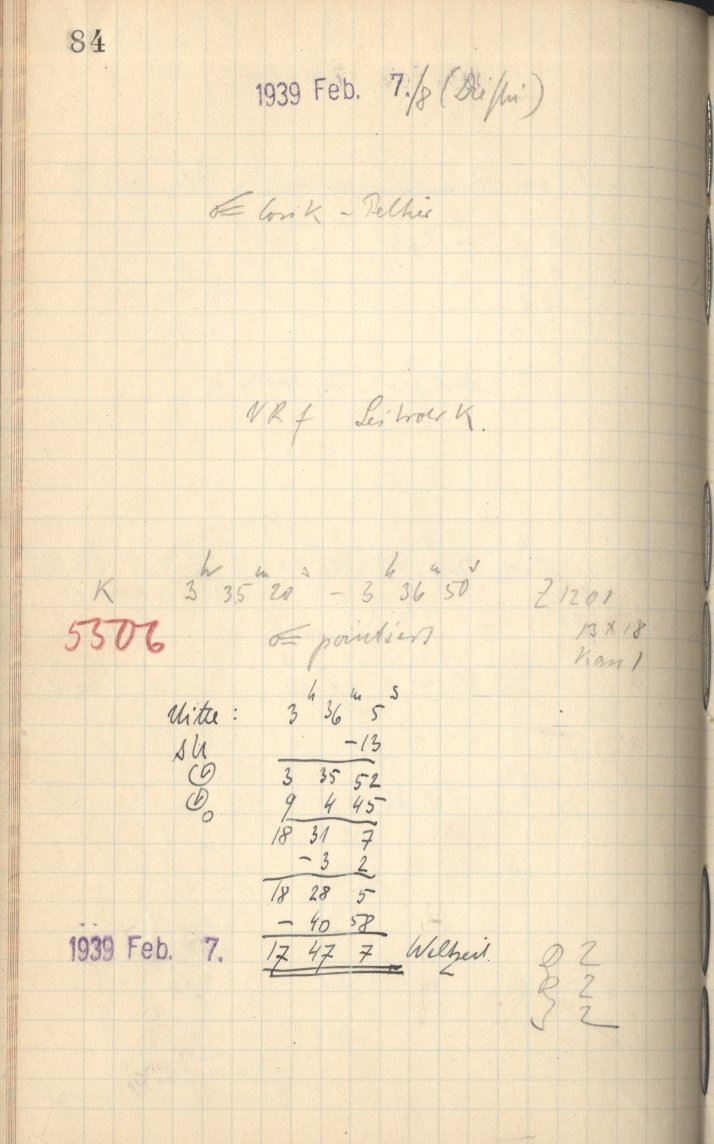 84
1939 Feb. 7./8
Cosik - Peltier
K 3h 35m 20s - 3h 36m 50s Z1201
5306 pointiert 13 x 18
Mitte: 3h 36m 5s
-13
3 35 52
9 4 45
18 31 7
- 3 2
18 28 5
- 40 58
1939 Feb. 7. 17 47 7 Weltzeit.
2
2
2